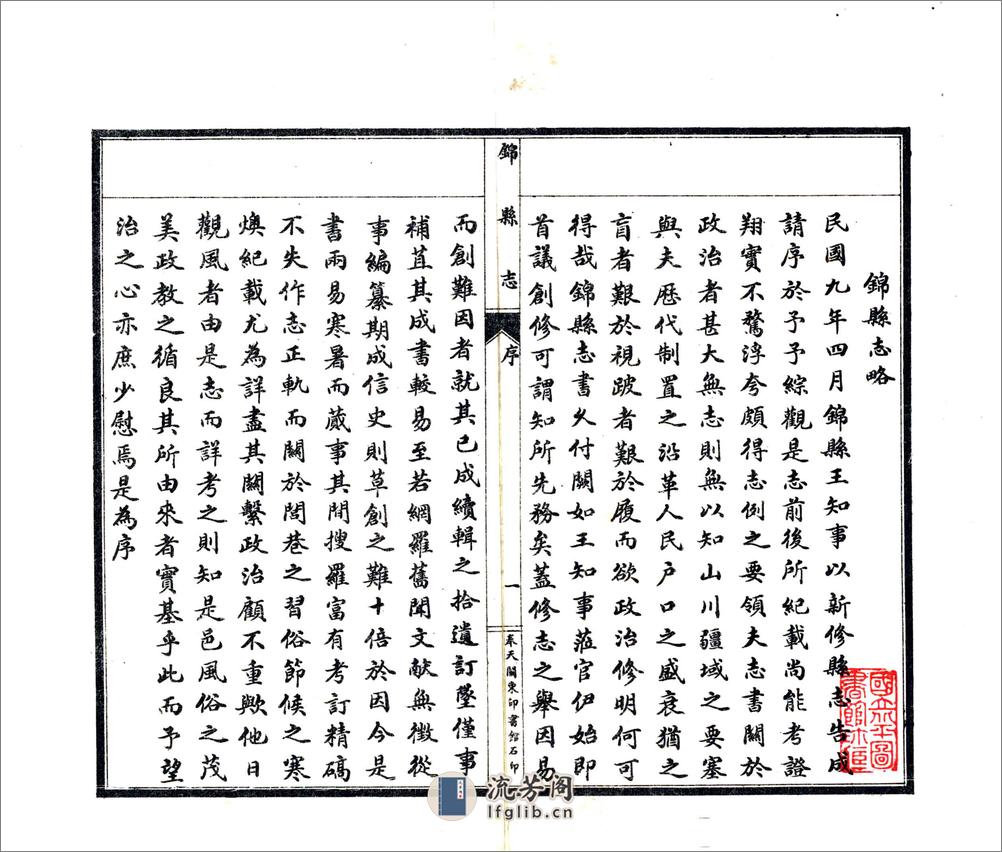 錦縣志略
民國九年四月錦縣王知事以新修縣志告成
請序於予予綜觀是志前後所紀載尚能考證
翔實不騖浮夸頗得志例之要領夫志書關於
政治者甚大無志則無以知山川疆域之要塞
與夫歷代制置之沿革人民戶口之盛衰猶之
盲者艱於視跛者艱於履而欲政治修明何可
得哉錦縣志書久付闕如王知事蒞官伊始即
首議創修可謂知所先務矣蓋修志之舉因易
錦縣志
序
一
奉天關東印書館石印
而創難因者就其已成續輯之拾遺訂墜僅事
補苴其成書較易至若網羅舊聞文献無徵從
事編纂期成信史則草創之難十倍於因今是
書兩易寒暑而蕆事其間搜羅富有考訂精碻
不失作志正軌而關於閭巷之習俗節候之寒
燠紀載尤為詳盡其關繫政治顧不重歟他日
觀風者由是志而詳考之則知是邑風俗之茂
美政教之循良其所由來者實基乎此而予望
治之心亦庶少慰焉是為序
流芳阁
lfglib.cn